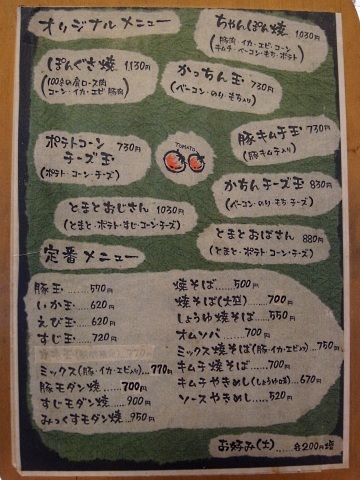 オリジナルメニュー
ちゃんぽん焼 1030円
(豚肉・イカ・エビ・コーン
キムチ・ベーコン・もち・ポテト)
ぽんぐさ焼 1,130円
(100gの肩ロース肉
コーン・イカ・エビ 豚肉)
かっちん玉 730円
(ベーコン・のり・もち入り)
ポテトコーン
チーズ玉 730円
(ポテト・コーン・チーズ)
TOMATO
豚キムチ玉 730円
(豚キムチ入り)
かちんチーズ玉 830円
(ベーコン・のり もち チーズ)
とまとおじさん 1030円
(とまと・ポテト・すじ・コーン・チーズ)
とまとおばさん 880円
(とまと・ポテト・コーン・チーズ)
定番メニュー
豚玉......590円
いか玉......620円
えび玉......620円
すじ玉......720円
ミックス(豚・イカ・エビ入り)...770円
豚モダン焼......700円
すじモダン焼...900円
みっくすモダン焼...950円
焼そば......500円
焼そば(大盛)......700円
しょうゆ焼そば......550円
オムソバ......700円
ミックス焼そば(豚・イカ・エビ入り)...750円
キムチ焼そば......700円
キムチやきめし(しょうゆ味)...670円
ソースやきめし......520円
お好み(大)...各200円増